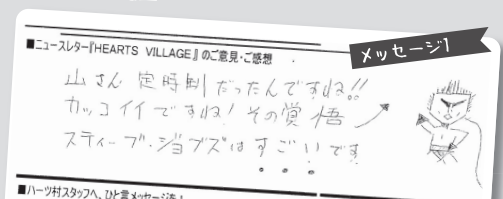 ■ニュースレター『HEARTS VILLAGE』のご意見・ご感想
メッセージ1
山さん 定時制だったんですね!!
カッコイイですね! その覚悟
スティーブ・ジョブズはすごいです
■ハーツ村スタッフへ、ひと言メッセージを!